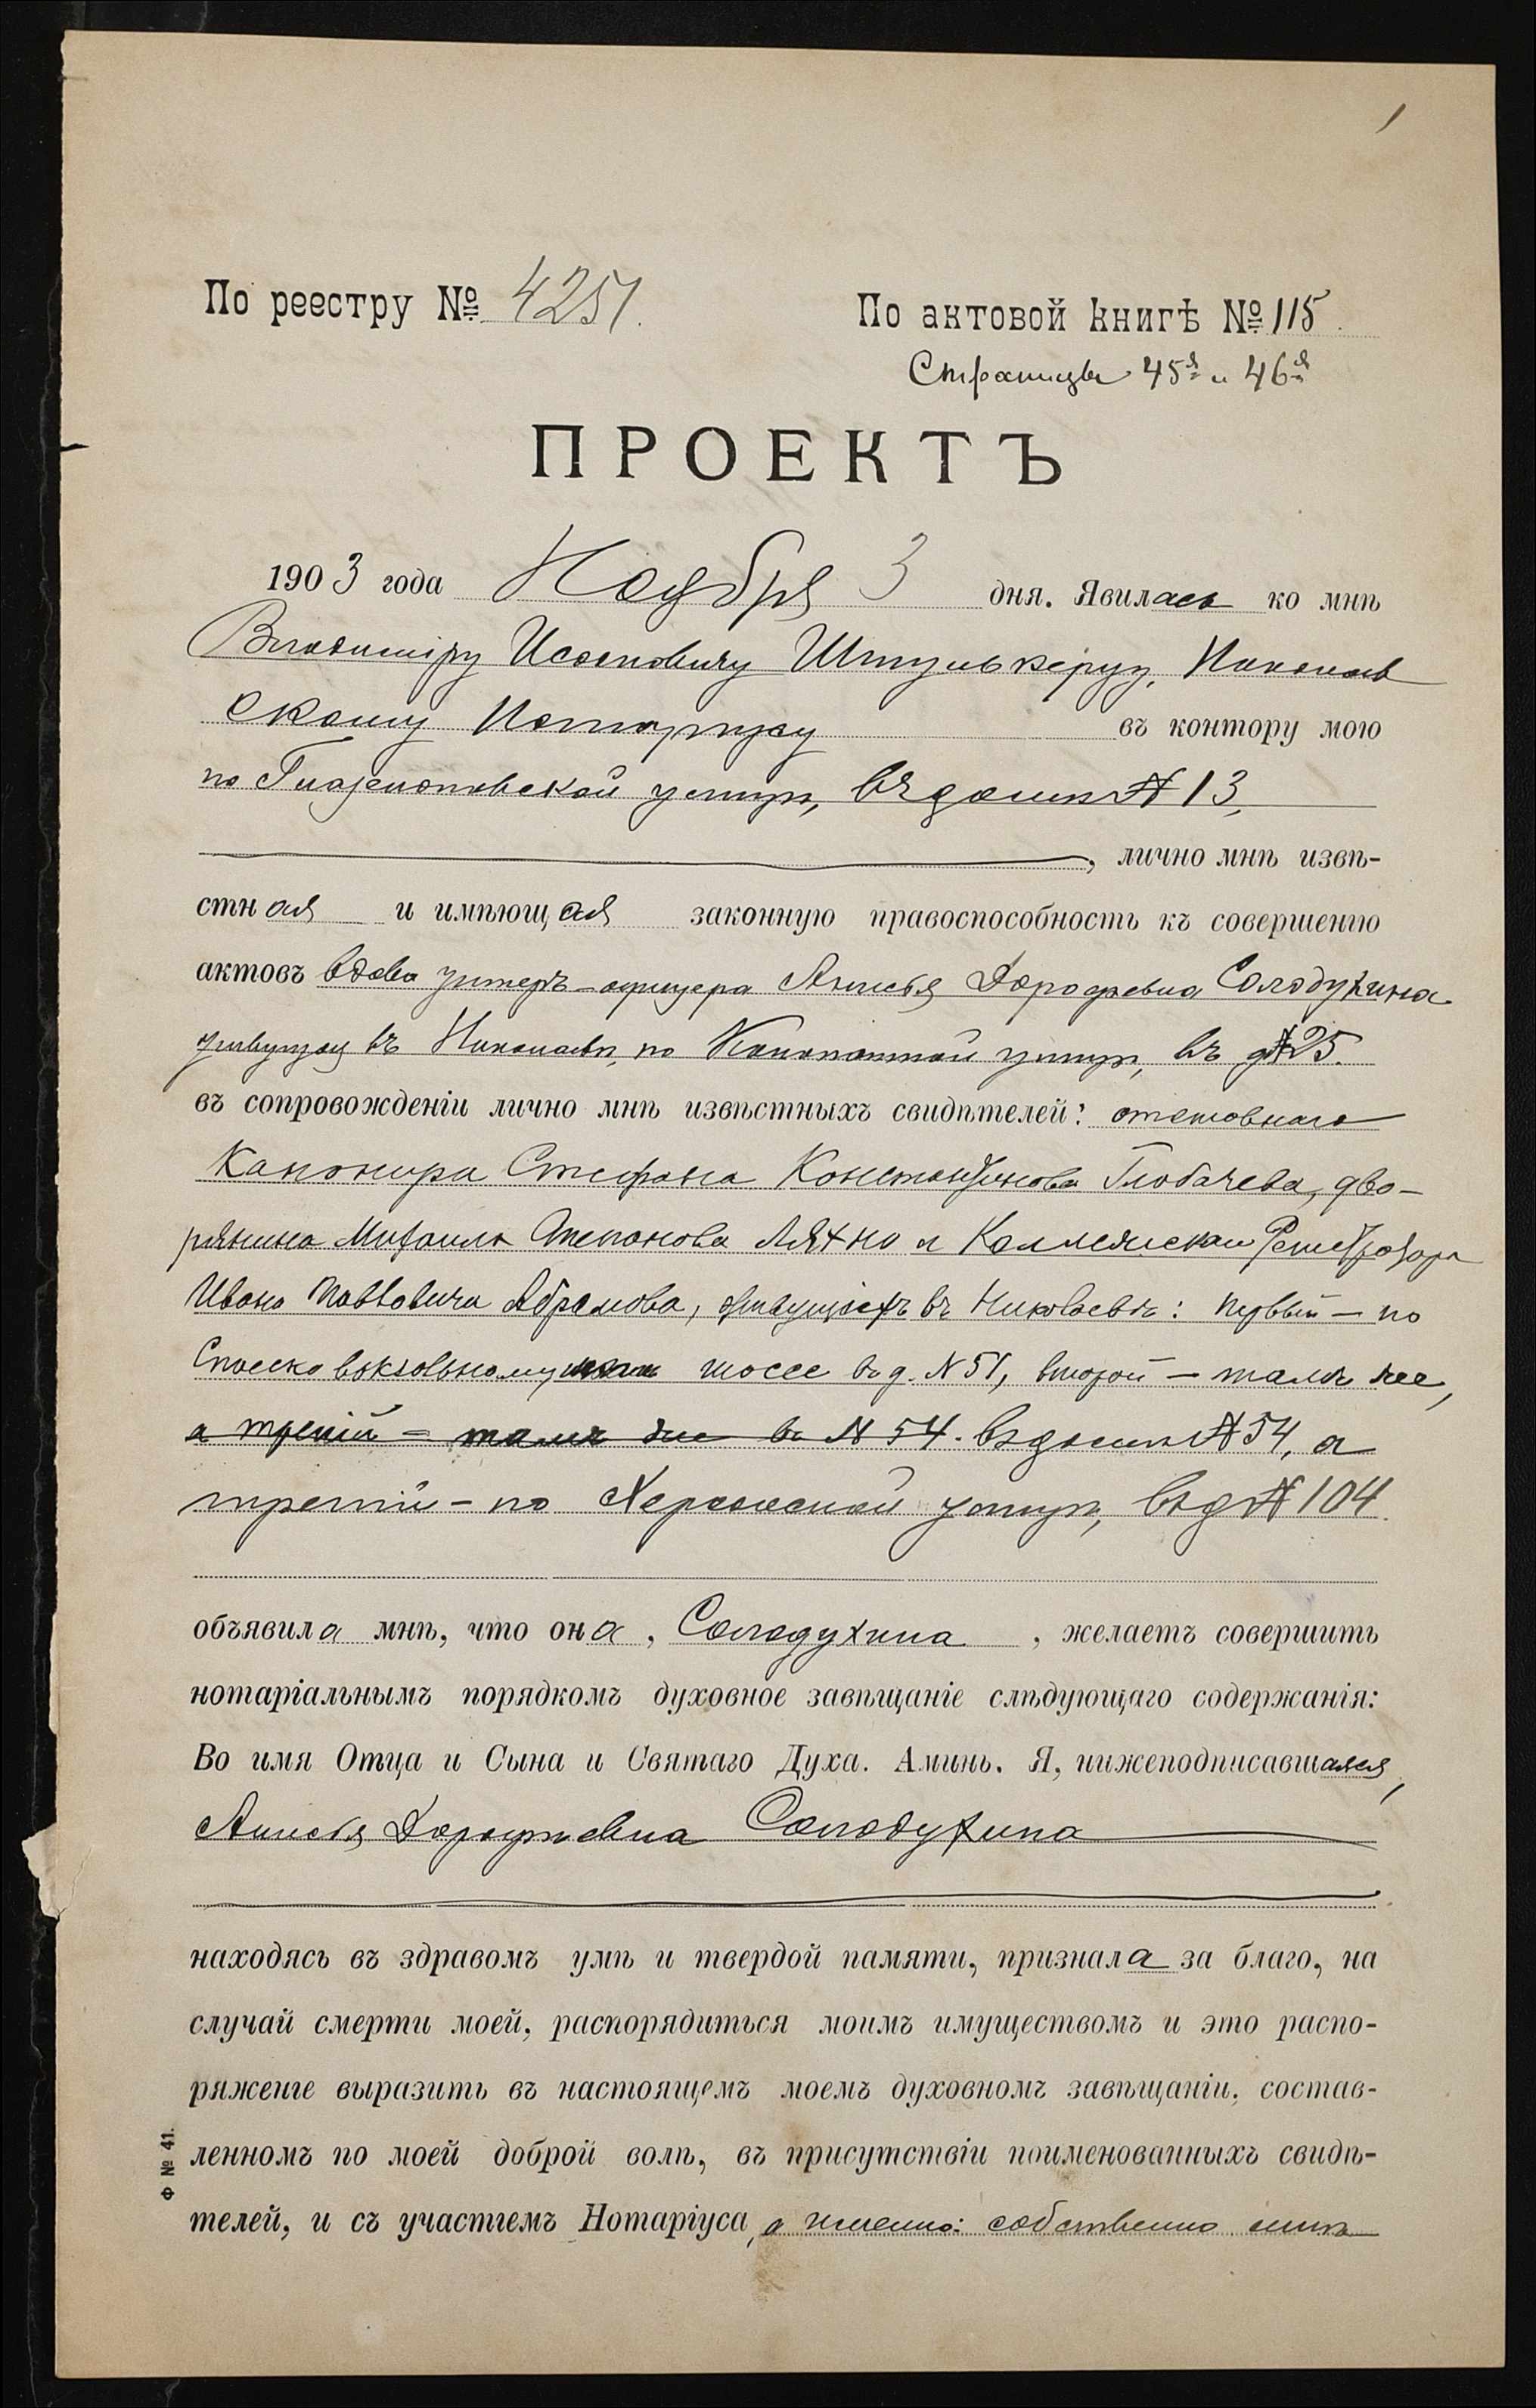 По реестру № 4251.
По актовой книгѣ № 115
Страницы 45я и 46я
ПРОЕКТЪ
1903 года Ноября 3 дня. Явилась ко мнѣ
Владиміру Исооповичу Николаев
скому Нотаріусу въ контору мою
по улицѣ, въ домѣ № 13,
, лично мнѣ извѣ-
стная и имѣющая законную правоспособность къ совершенію
актовъ вдова унтеръ-офицера Анисья Дорофѣевна Солодухина
живущая въ Николаевѣ, по улицѣ, въ д № 25.
въ сопровожденіи лично мнѣ извѣстныхъ свидѣтелей: отставнаго
Канонира Стефана Константинова Глобачева, дво-
рянина Михаила Степанова Ляхно и Коллежскаго Регистратора
Ивана Павловича Абрамова, живущихъ въ Николаевѣ: первый — по
Спасско вокзальному шоссе въ д. N 51, второй — тамъ же,
а третій — тамъ же въ N 54. въ домѣ № 54, а
третій — по Херсонской улицѣ, въ д № 104.
объявила мнѣ, что она, Солодухина, желаетъ совершить
нотаріальнымъ порядкомъ духовное завѣщаніе слѣдующаго содержанія:
Во имя Отца и Сына и Святаго Духа. Аминь. Я, нижеподписавшаяся,
Анисья Дорофѣевна Солодухина
находясь въ здравомъ умѣ и твердой памяти, признала за благо, на
случай смерти моей, распорядиться моимъ имуществомъ и это распо-
ряженіе выразить въ настоящемъ моемъ духовномъ завѣщаніи, состав-
ленномъ по моей доброй волѣ, въ присутствіи поименованныхъ свидѣ-
телей, и съ участіемъ Нотаріуса, а именно: собственно мнѣ
Ф № 41.